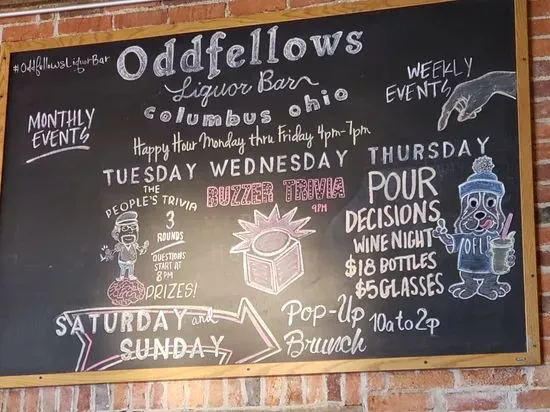 #OddfellowsLiquorBar
Oddfellows
Liquor Bar
Columbus Ohio
WEEKLY
EVENTS
MONTHLY
EVENTS
Happy Hour Monday thru Friday 4pm-7pm
TUESDAY WEDNESDAY THURSDAY
THE
PEOPLE'S TRIVIA
3
ROUNDS
QUESTIONS
START AT
8 PM
PRIZES!
BUZZER TRIVIA
9PM
POUR
DECISIONS
WINE NIGHT
$18 BOTTLES
$5 GLASSES
SATURDAY and
SUNDAY
Pop-Up
Brunch
10a to 2p